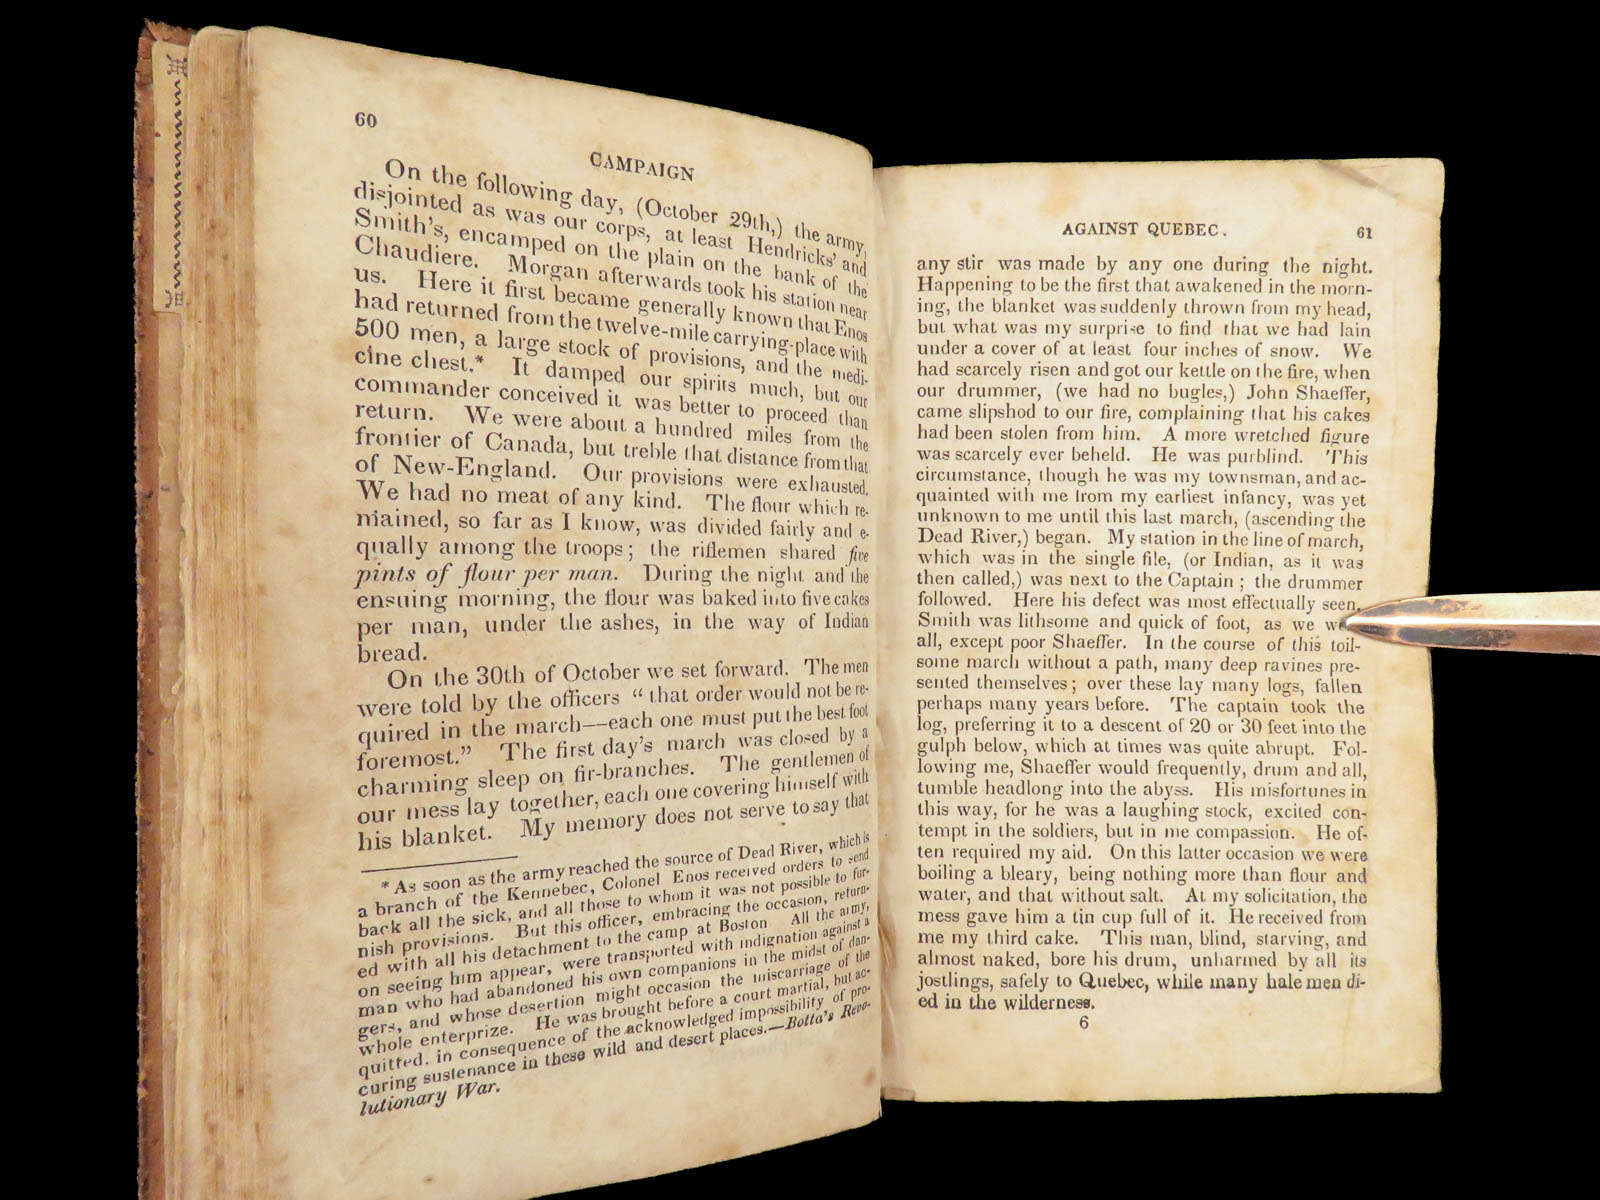 60
CAMPAIGN
On the following day, (October 29th,) the army,
disjointed as was our corps, at least Hendricks' and
Smith's, encamped on the plain on the bank of the
Chaudiere. Morgan afterwards took his station near
us. Here it first became generally known that Enos
had returned from the twelve-mile carrying-place with
500 men, a large stock of provisions, and the medi-
cine chest.* It damped our spirits much, but our
commander conceived it was better to proceed than
return. We were about a hundred miles from the
frontier of Canada, but treble that distance from that
of New-England. Our provisions were exhausted.
We had no meat of any kind. The flour which re-
mained, so far as I know, was divided fairly and e-
qually among the troops; the riflemen shared five
pints of flour per man. During the night and the
ensuing morning, the flour was baked into five cakes
per man, under the ashes, in the way of Indian
bread.
On the 30th of October we set forward. The men
were told by the officers "that order would not be re-
quired in the march--each one must put the best foot
foremost." The first day's march was closed by a
charming sleep on fir-branches. The gentlemen of
our mess lay together, each one covering himself with
his blanket. My memory does not serve to say that
* As soon as the army reached the source of Dead River, which is
a branch of the Kennebec, Colonel Enos received orders to send
back all the sick, and all those to whom it was not possible to fur-
nish provisions. But this officer, embracing the occasion, return-
ed with all his detachment to the camp at Boston All the army,
on seeing him appear, were transported with indignation against a
man who had abandoned his own companions in the midst of dan-
gers, and whose desertion might occasion the miscarriage of the
whole enterprize. He was brought before a court martial, but ac-
quitted, in consequence of the acknowledged impossibility of pro-
curing sustenance in these wild and desert places.—Botta's Revo-
lutionary War.
AGAINST QUEBEC.
61
any stir was made by any one during the night.
Happening to be the first that awakened in the morn-
ing, the blanket was suddenly thrown from my head,
but what was my surprise to find that we had lain
under a cover of at least four inches of snow. We
had scarcely risen and got our kettle on the fire, when
our drummer, (we had no bugles,) John Shaeffer,
came slipshod to our fire, complaining that his cakes
had been stolen from him. A more wretched figure
was scarcely ever beheld. He was purblind. This
circumstance, though he was my townsman, and ac-
quainted with me from my earliest infancy, was yet
unknown to me until this last march, (ascending the
Dead River,) began. My station in the line of march,
which was in the single file, (or Indian, as it was
then called,) was next to the Captain; the drummer
followed. Here his defect was most effectually seen.
Smith was lithsome and quick of foot, as we
all, except poor Shaeffer. In the course of this toil-
some march without a path, many deep ravines pre-
sented themselves; over these lay many logs, fallen
perhaps many years before. The captain took the
log, preferring it to a descent of 20 or 30 feet into the
gulph below, which at times was quite abrupt. Fol-
lowing me, Shaeffer would frequently, drum and all,
tumble headlong into the abyss. His misfortunes in
this way, for he was a laughing stock, excited con-
tempt in the soldiers, but in me compassion. He of-
ten required my aid. On this latter occasion we were
boiling a bleary, being nothing more than flour and
water, and that without salt. At my solicitation, the
mess gave him a tin cup full of it. He received from
me my third cake. This man, blind, starving, and
almost naked, bore his drum, unharmed by all its
jostlings, safely to Quebec, while many hale men di-
ed in the wilderness.
6